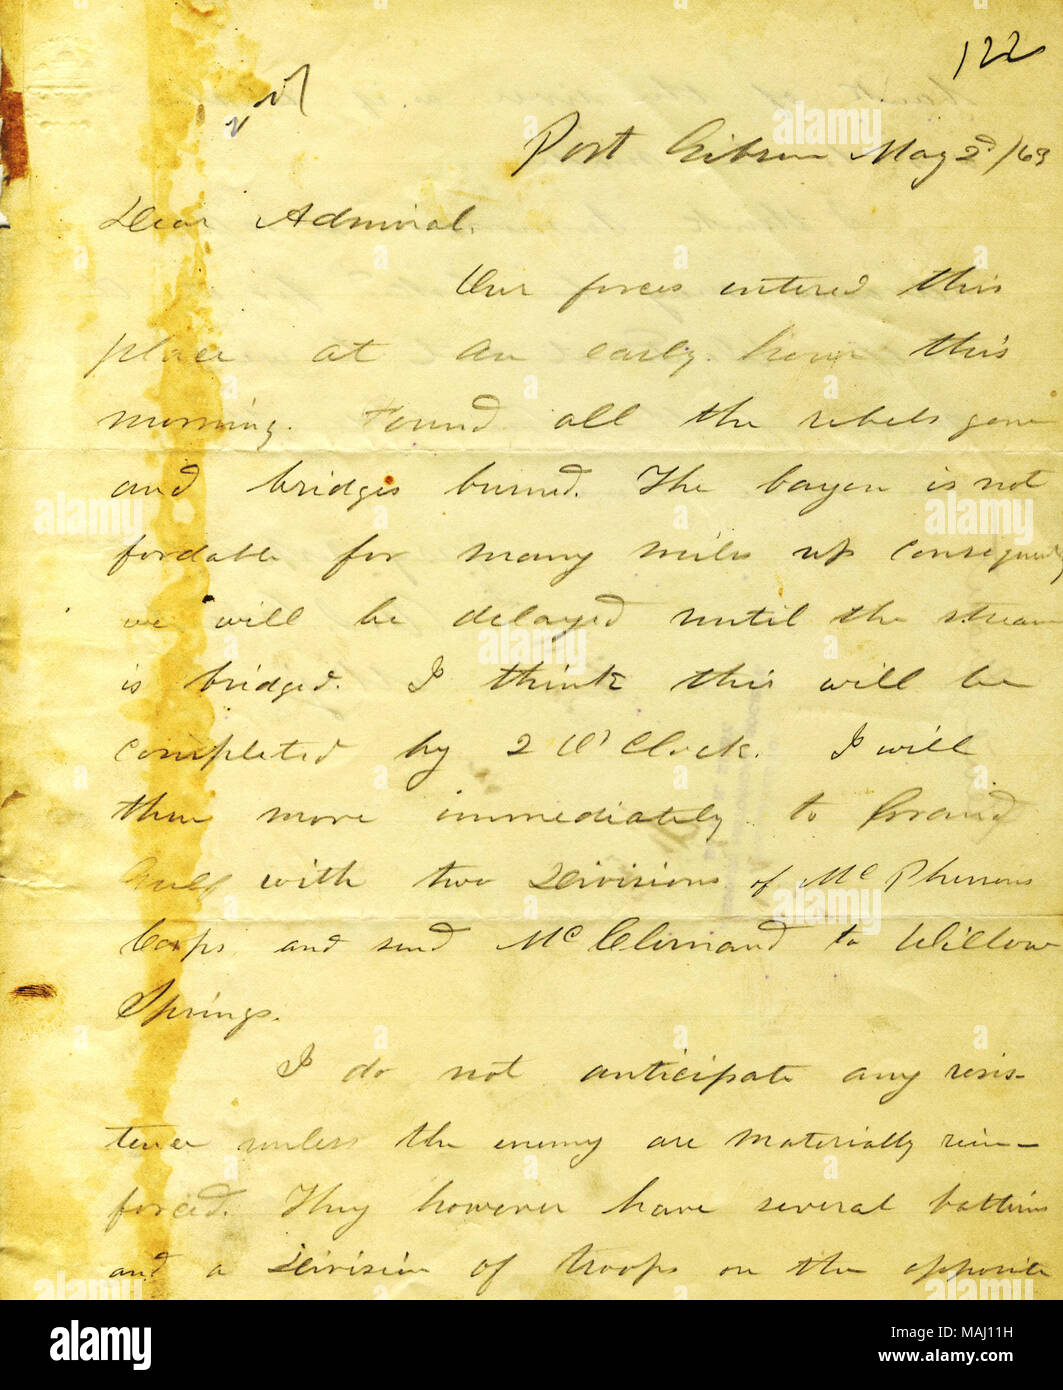 122
Port Gibson May 2d/63
Dear Admiral.
Our forces entered this
place at an early hour this
morning. Found all the rebels gone
and bridges burned. The bayou is not
fordable for many miles up consequently
we will be delayed until the stream
is bridged. I think this will be
completed by 2 O'Clock. I will
then move immediately to Grand
Gulf with two Divisions of McPhersons
Corps and send McClernand to Willow
Springs.
I do not anticipate any resis-
tence unless the enemy are materially rein-
forced. They however have several batteries
and a Division of troops on the opposite
alamy
Image ID: MAJ11H
www.alamy.com